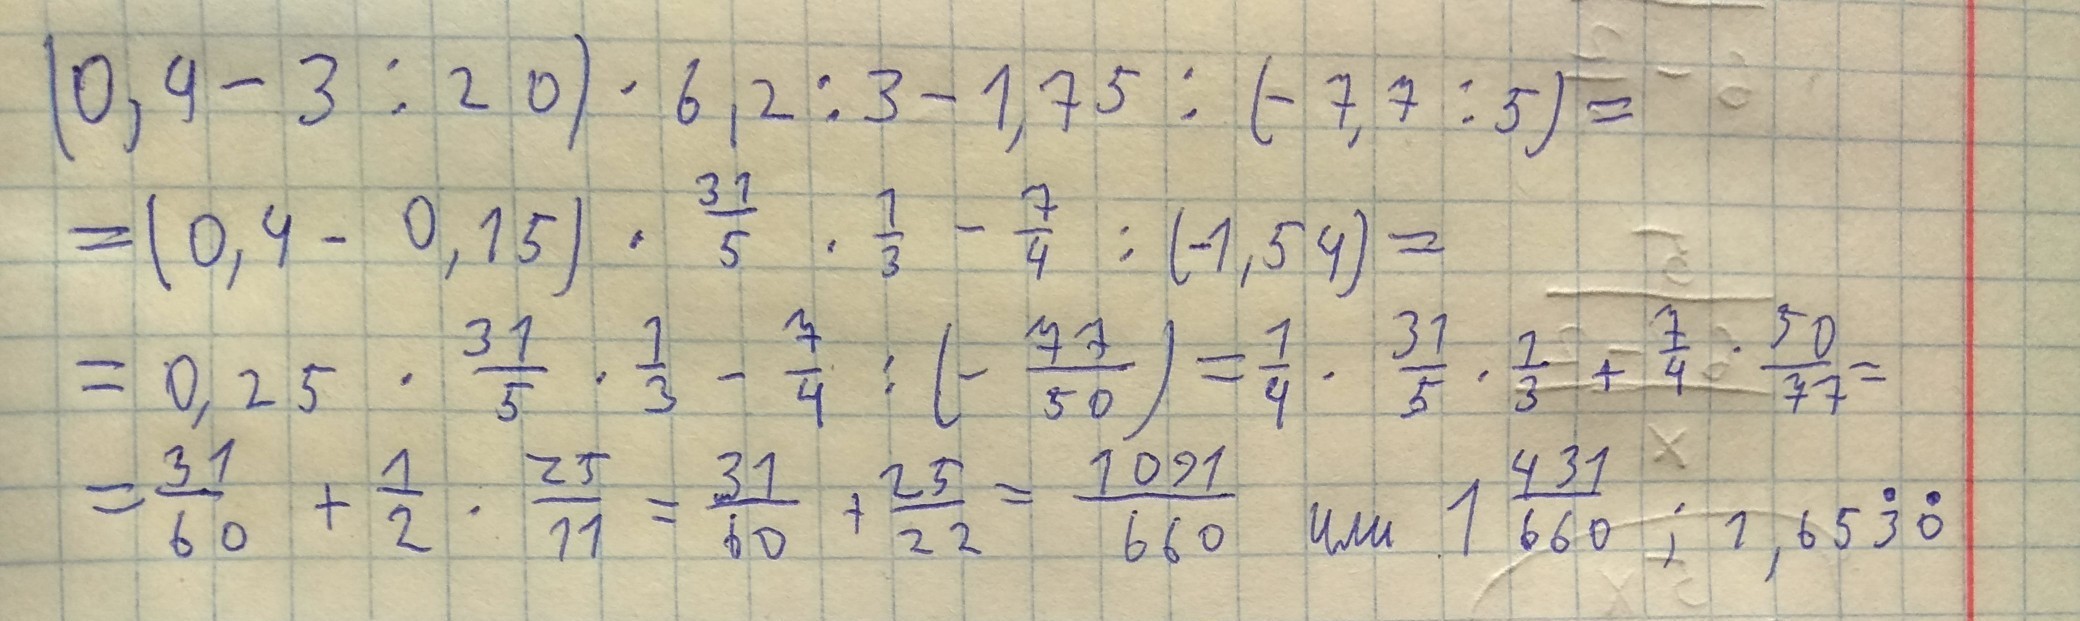 (0,4 - 3 : 20) · 6,2 : 3 - 1,75 : (-7,7 : 5) =
= (0,4 - 0,15) · 31/5 · 1/3 - 7/4 : (-1,54) =
= 0,25 · 31/5 · 1/3 - 7/4 : (- 77/50) = 1/4 · 31/5 · 1/3 + 7/4 · 50/77 =
= 31/60 + 1/2 · 25/11 = 31/60 + 25/22 = 1091/660 или 1 431/660 ; 1,653̇0̇